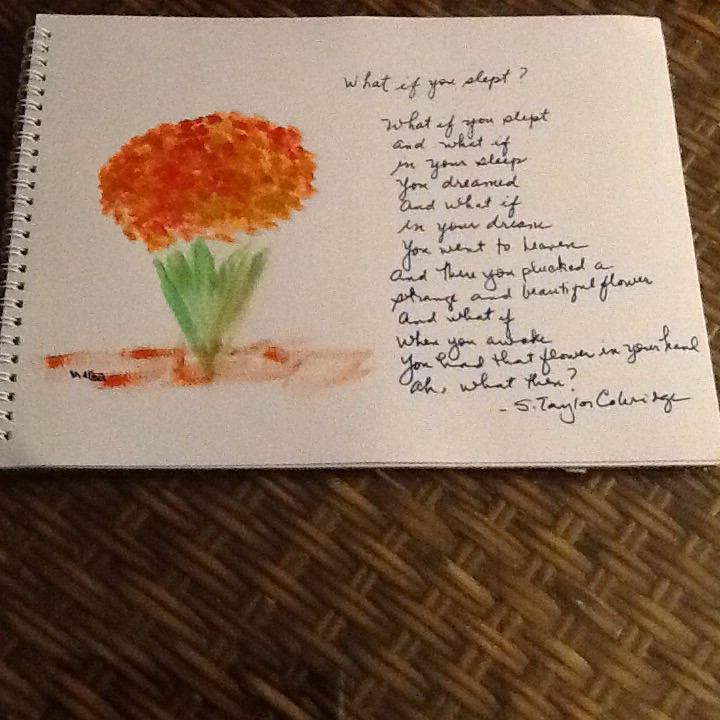 What if you slept?
What if you slept
and what if
in your sleep
You dreamed
And what if
in your dream
You went to heaven
And there you plucked a
strange and beautiful flower
And what if
When you awoke
You had that flower in your hand
Ah, what then?
- S. Taylor Coleridge